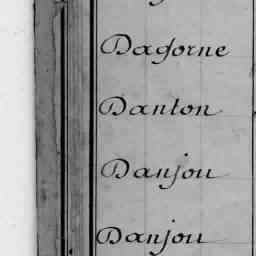 Dagorne
Danton
Danjou
Danjou